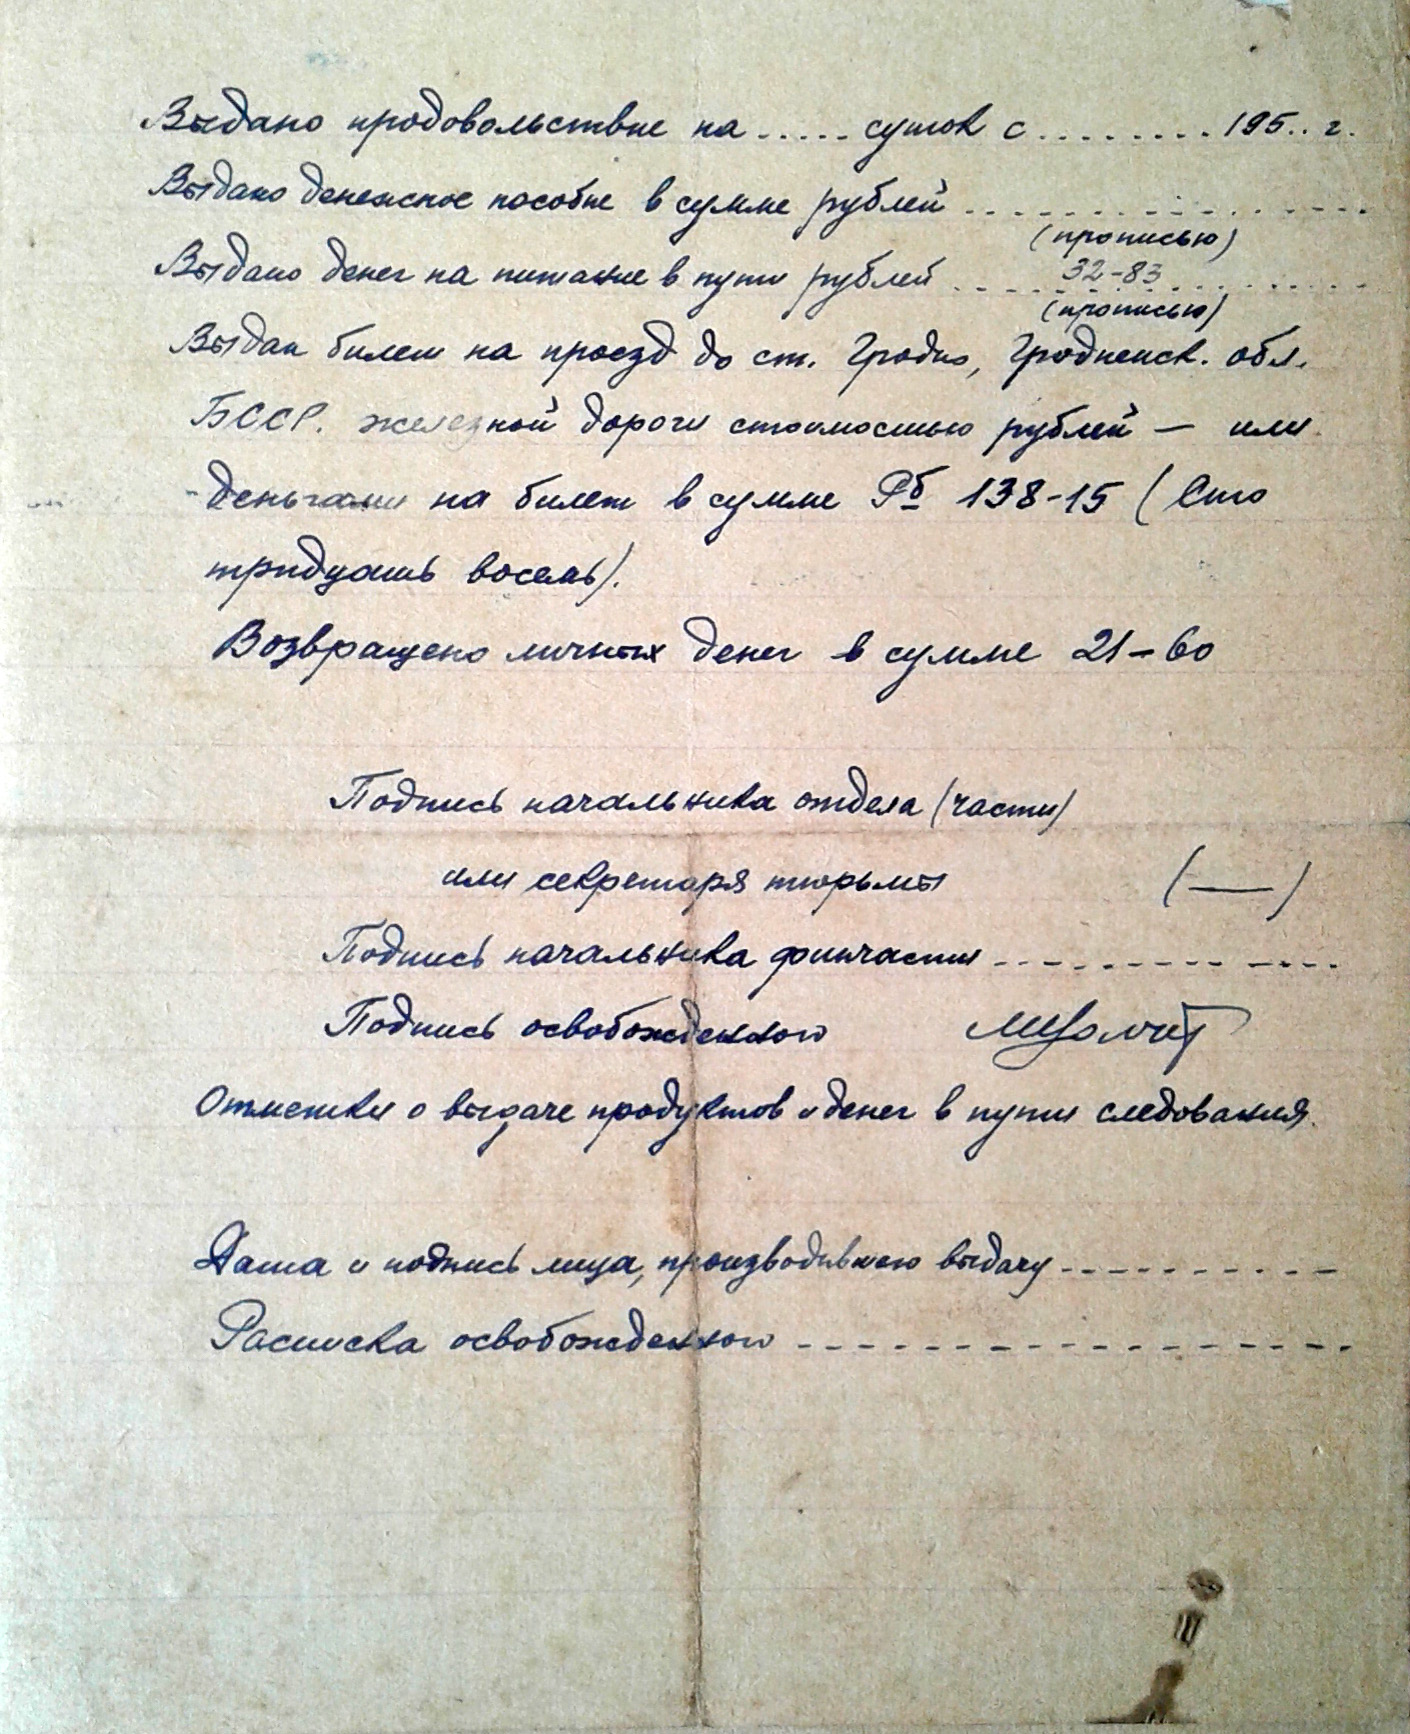 Выдано продовольствие на ..... суток с ........ 195.. г.
Выдано денежное пособие в сумме рублей ................
(прописью)
Выдано денег на питание в пути рублей .... 32-83 ..........
(прописью)
Выдан билет на проезд до ст. Гродно, Гродненск. обл.
БССР. железной дороги стоимостью рублей — или
деньгами на билет в сумме Рб 138-15 (Сто
тридцать восемь).
Возвращено личных денег в сумме 21-60
Подпись начальника отдела (части)
или секретаря тюрьмы (—)
Подпись начальника финчасти ------------
Подпись освобожденного
Отметки о выдаче продуктов и денег в пути следования.
Дата и подпись лица, производившего выдачу ----------
Расписка освобожденного ------------------